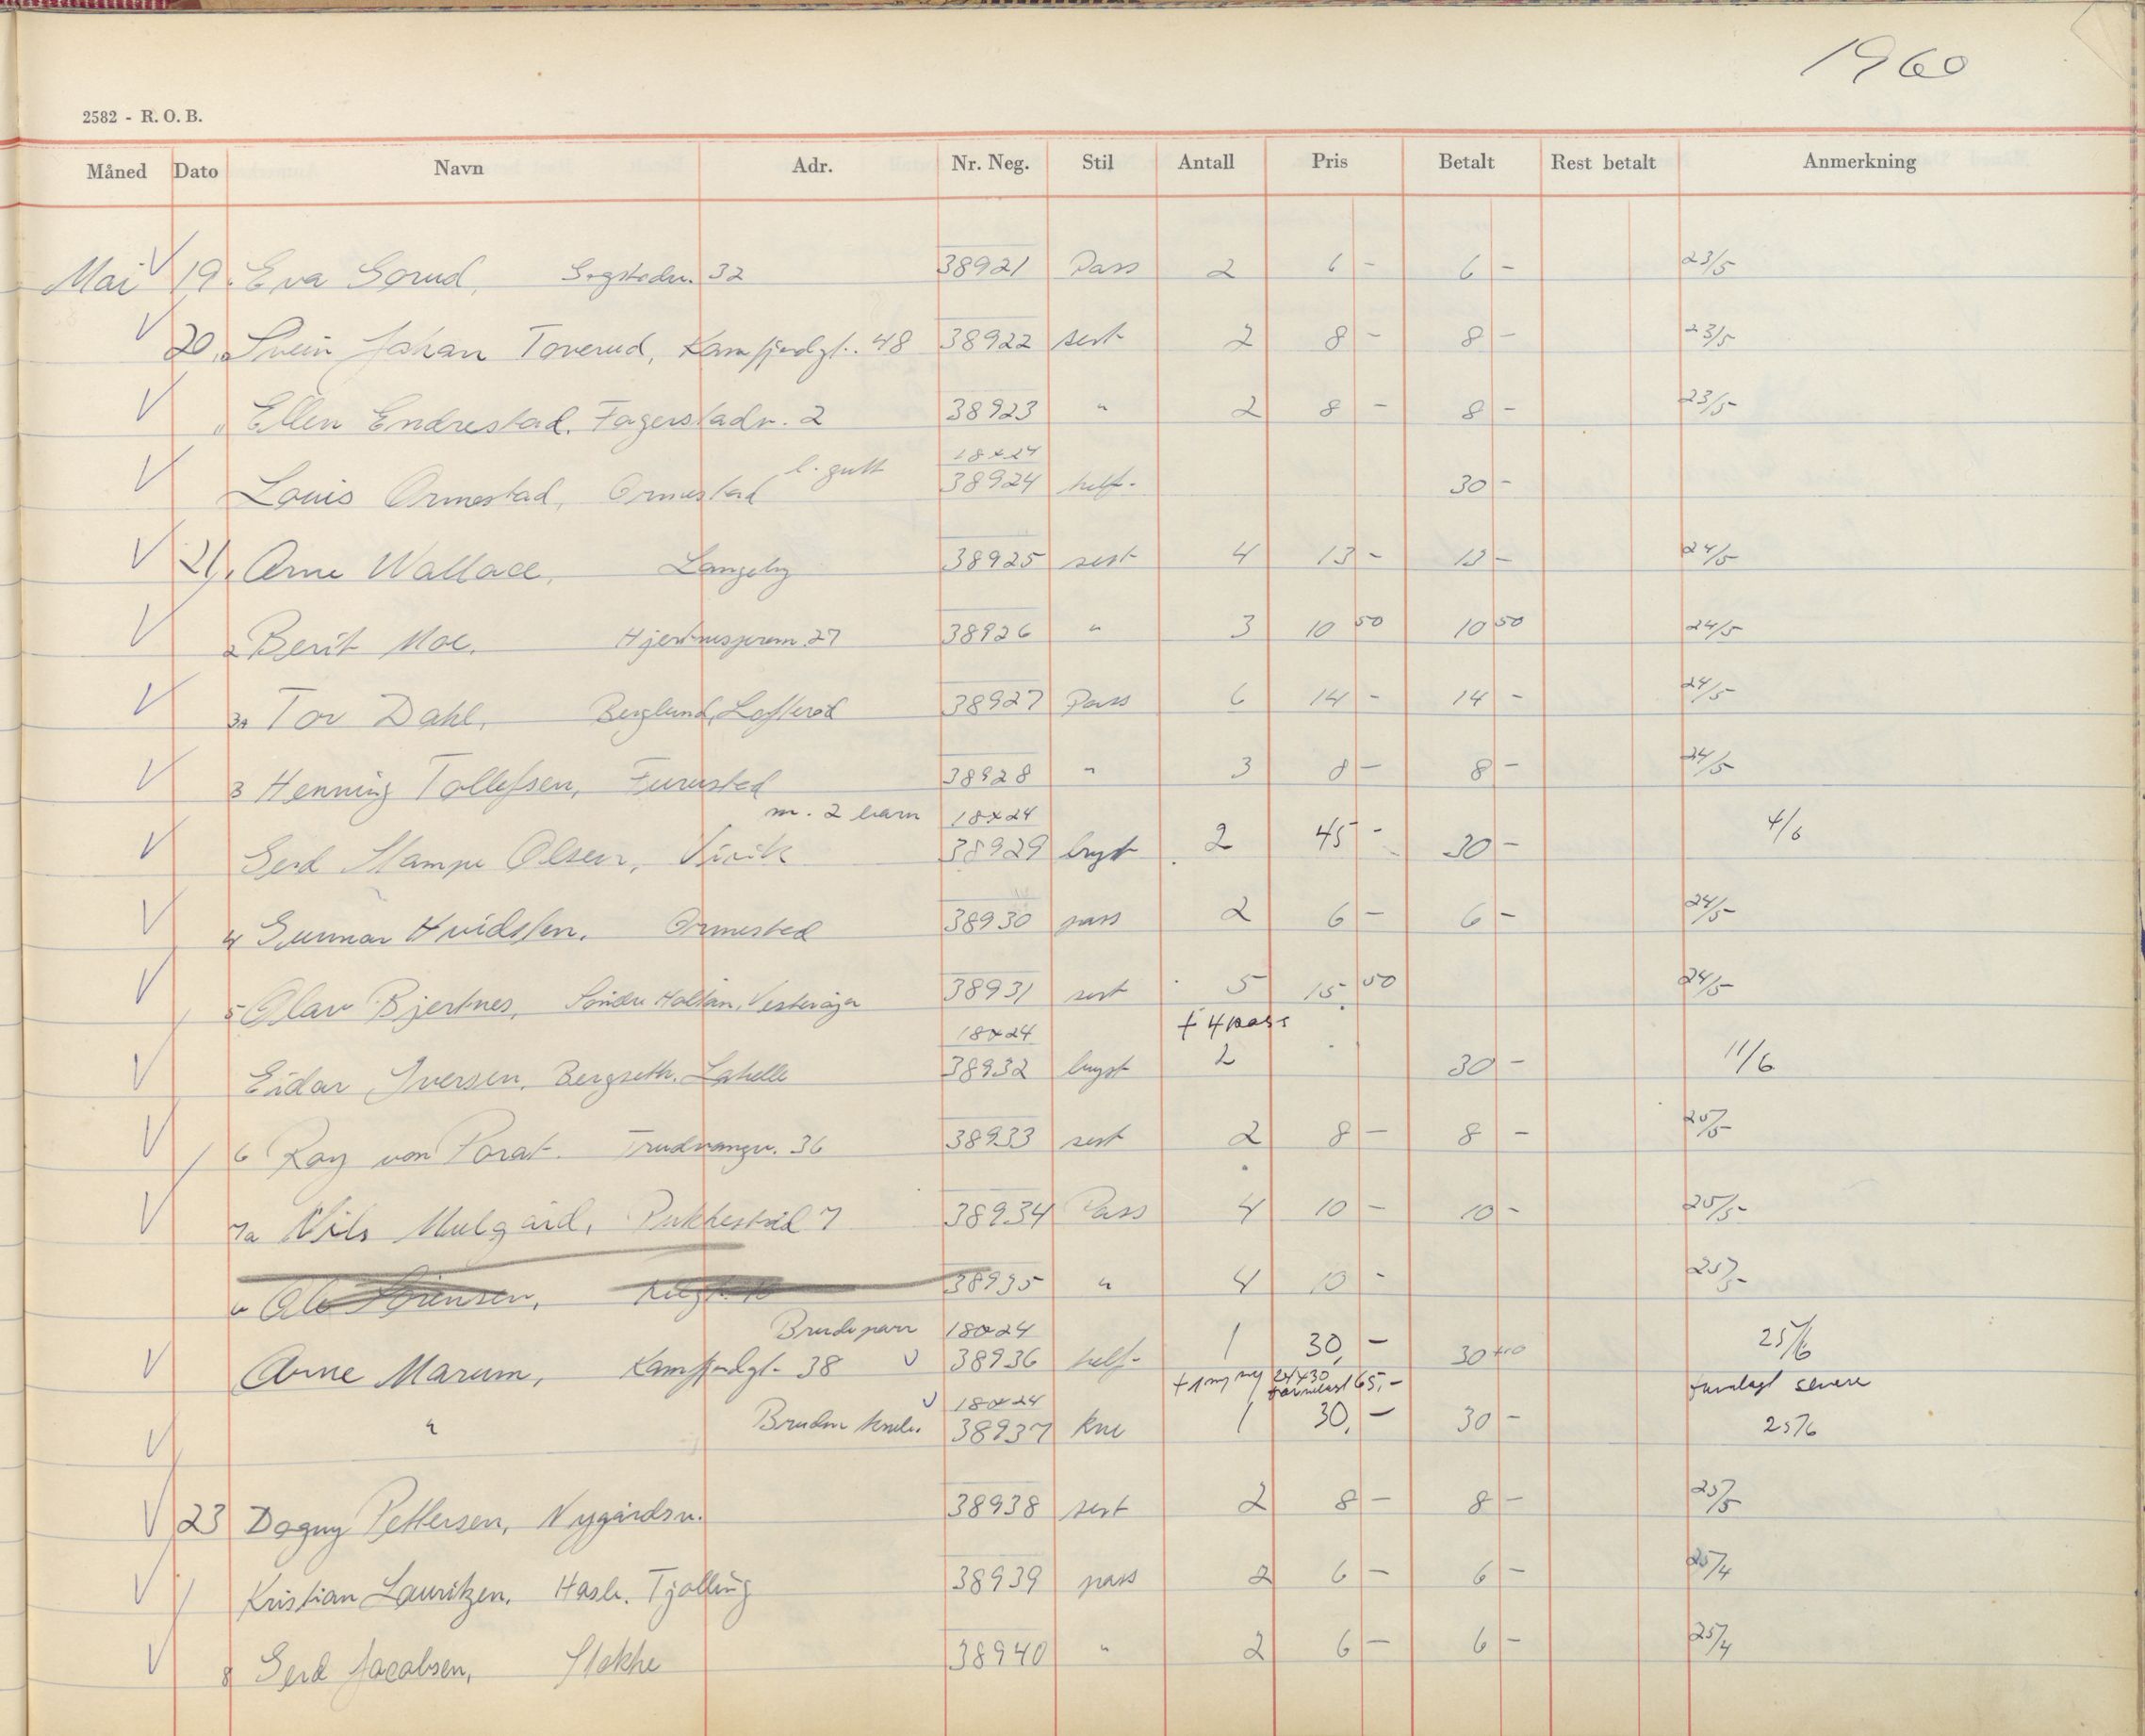 1960
2582 - R. O. B.
Måned Dato Navn Adr. Nr. Neg. Stil Antall Pris Betalt Rest betalt Anmerkning
Mai 19. Eva Sorud, 32 38921 Pass 2 6 - 6 - 23/5
20. Svein Johan Toverud, Kamfjordgt. 48 38922 sert 2 8 - 8 - 23/5
" Ellen Endrestad. Fagerstadv. 2 38923 " 2 8 - 8 - 23/5
l. gutt 18x24
Louis Ormestad, Ormestad 38924 helf. 30 -
21. Arne Wallace, Langeby 38925 sert 4 13 - 13 - 24/5
2 Berit Moe. 27 38926 " 3 10 50 10 50 24/5
3a Tor Dahl, Berglund, 38927 Pass 6 14 - 14 - 24/5
3 Henning Tollefsen, Furustad 38928 " 3 8 - 8 - 24/5
m. 2 barn 18x24
Gerd Stampe Olsen, Virik 38929 bryst 2 45 - 30 - 4/6
4 Gunnar Hvidsten. Ormestad 38930 pass 2 6 - 6 - 24/5
5 Olav Bjertnes, Söndre Haltan, Vesteröya 38931 sert 5 15 50 24/5
18x24 + 4 pass
Eidar Iversen, Bergseth. Lahelle 38932 bryst 2 30 - 11/6
6 Roy von Porat. Trudvangv. 36 38933 sert 2 8 - 8 - 25/5
7a Nils Mulgård, Pukkestad 7 38934 Pass 4 10 - 10 - 25/5
Sörensen, 38935 " 4 10 - 25/5
Brudepar 18x24
Arne Marum, Kamfjordgt. 38 38936 helf. 1 30,- 30 25/6
24x30 65,- senere
18x24
" Bruden 38937 kne 1 30,- 30 - 25/6
23 Dagny Pettersen, Nygårdsv. 38938 sert 2 8 - 8 - 25/5
Kristian Lauritzen. Hasle. Tjølling 38939 pass 2 6 - 6 - 25/4
8 Gerd Jacobsen, Stokke 38940 " 2 6 - 6 - 25/4